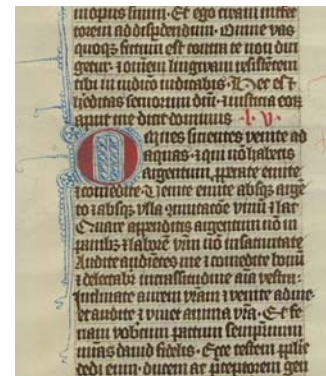 in opus suum. Et ego creavi interfec
torem ad disperdendum. Omne vas
quod fictum est contra te non diri
getur. ⁊ omnem linguam resistentem
tibi in iudicio iudicabis. Hec est
hereditas seruorum dni. ⁊ iusticia eoꝝ
aput me dicit dominus. l. v.
Omnes sitientes venite ad
aquas. ⁊ qui nō habetis
argentum, pperate emite
⁊ comedite. Venite emite absqꝫ argē
to ⁊ absqꝫ vlla ɔmutatōe vinū ⁊ lac
Quare appenditis argentum nō in
panibꝫ ⁊ laborē vr̄m nō in saturitate
Audite audiētes me ⁊ comedite bonū
⁊ delectabr̄ in crassitudine aīa vestra.
Inclinate aurem vr̄am ⁊ venite ad me.
et audite ⁊ viuet anima vr̄a. Et fe
riam vobiscum pactum sempiternum
mīas dauid fideles. Ecce testem pplis
dedi eum. ducem ac pceptorem gen